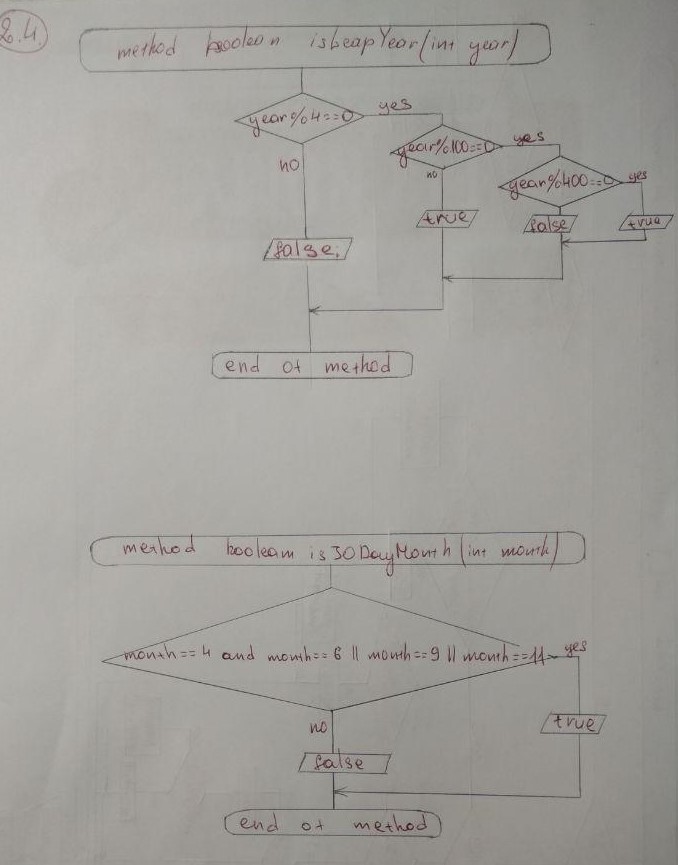 2.4.
method boolean isLeapYear(int year)
year%4==0 yes
year%100==0 yes
no
no
year%400==0 yes
true
false
true
false;
end of method
method boolean is30DayMonth(int month)
month==4 and month==6 || month==9 || month==11 yes
no
true
false
end of method